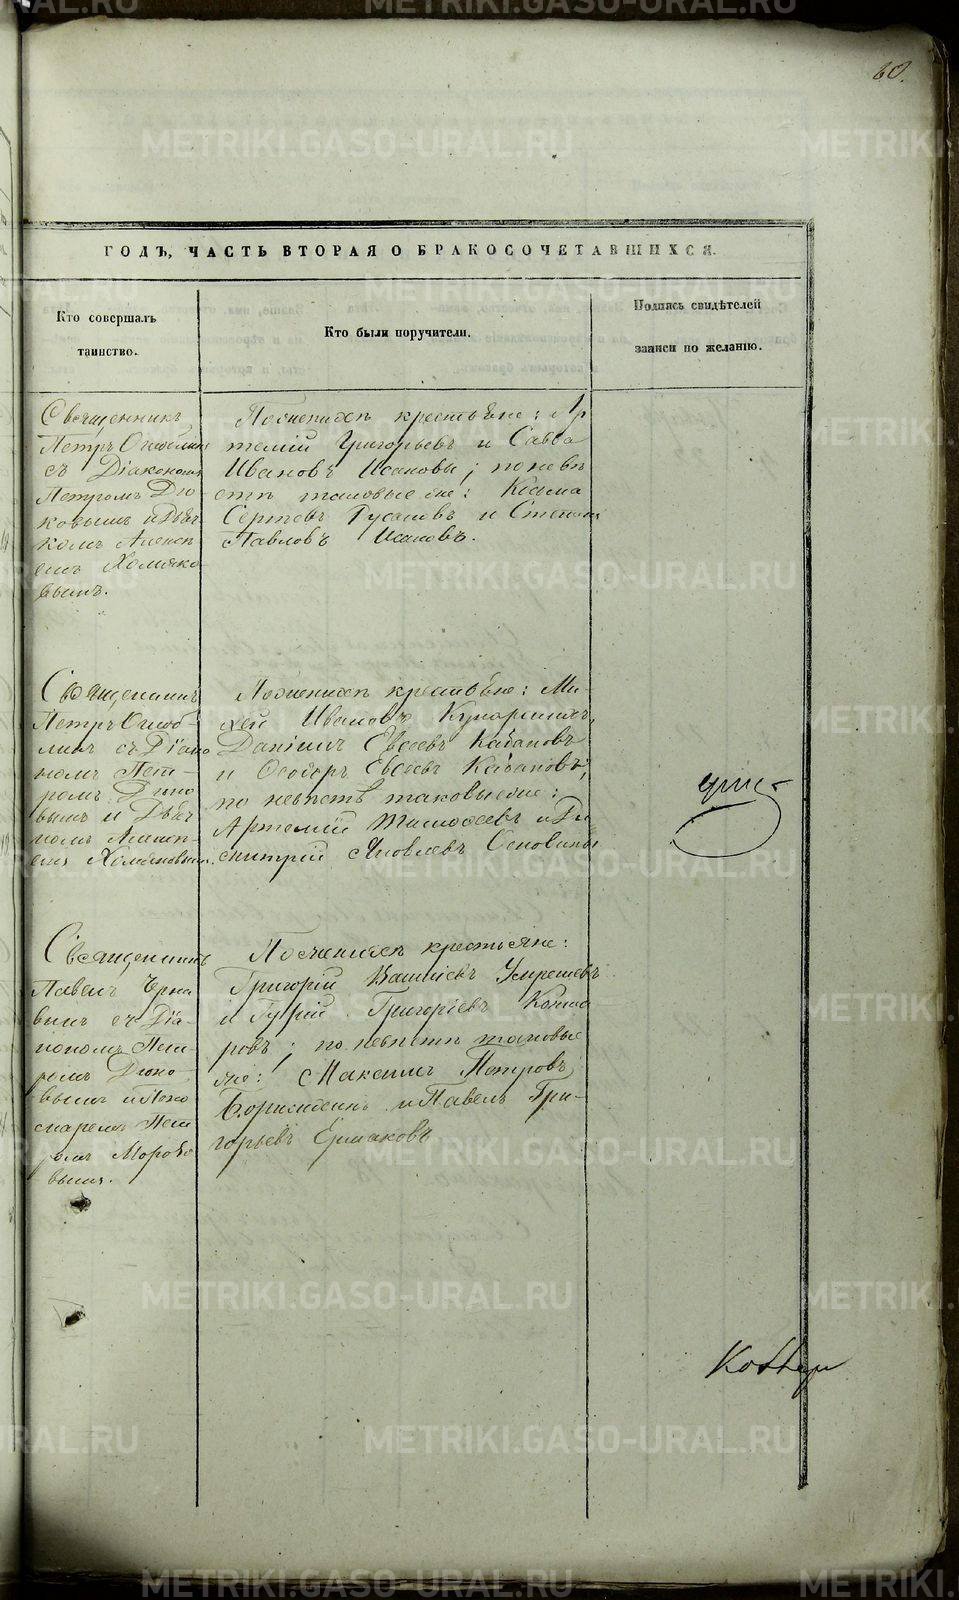 60.
ГОДЪ, ЧАСТЬ ВТОРАЯ О БРАКОСОЧЕТАВШИХСЯ.
Кто совершалъ
таинство.
Кто были поручители.
Подпись свидѣтелей
записи по желанію.
Священникъ
Петръ
съ Діакономъ
Петромъ Дю-
ковымъ и Дьяч-
комъ Алексѣ-
емъ Холмяко
вымъ.
По женихѣ крестьяне: Ар
темій Григорьевъ и Савва
Ивановъ Исаковы; по невѣ
стѣ таковые же: Козьма
Сергѣевъ и Степанъ
Павловъ Исаковъ.
Священникъ
Петръ
съ Діако
номъ Пет-
ромъ Дюко
вымъ и Дьяч-
комъ Алексѣ-
емъ Холмяковымъ.
По женихѣ крестьяне: Ми-
хей Ивановъ
Даніилъ Евсеевъ Кабановъ
и Ѳеодоръ Евсеевъ Кабановъ;
по невѣстѣ таковые же:
Артемій Тимоѳеевъ и Ди
митрій Яковлевъ
Священникъ
Павелъ Черна
винъ съ Діа-
кономъ Пет-
ромъ Дюко
вымъ и Поно
маремъ Пет
ромъ Морозо
вымъ.
По женихѣ крестьяне:
Григорій
и Гурій Григорьевъ
ровъ; по невѣстѣ таковые
же: Максимъ Петровъ
и Павелъ Гри-
горьевъ Ермаковъ
METRIKI.GASO-URAL.RU